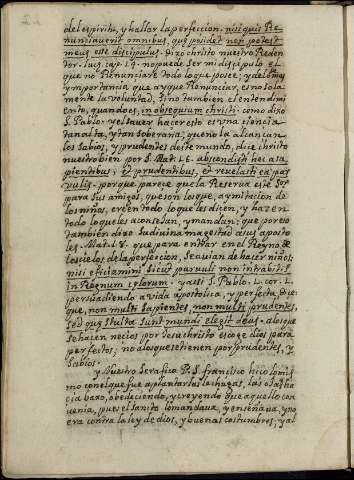 del espiritu, y hallar la perfeccion, nisi quis Re-
nunciauerit omnibus, quę posidet non potest
meus este discipulus. Dizo christo nuestro Reden
tor. luc. cap. 14. no puede ser mi discipulo el
que no Renunciare todo lo que posee; y de los mas
ymportancia que ay que Renunciar, es no sola
mente la voluntad, sino tambien el entendimi
ento, quando es, in obsequium christi. como dizo
S. Pablo. y el sauer hacer esto es una ciencia
tan alta, y tan soberana, que no la alcançan
los sabios, y prudentes deste mundo, dice christo
nuestro bien por S. Mat. 11. abscondisti hec a sa
pientibus, et prudentibus, et reuelasti ea par
vulis. porque parece que la Reserua este Sor
para sus amigos, que son los que, a ymitacion de
los niños, creen todo lo que les dicen, y hazen
todo lo que les aconsejan, y mandan; que por eso
tambien dizo su diuina magestad a sus aposto
les. Mat. 18. que para entrar en el Reyno de
los cielos de la perfeccion, se auian de hacer niños;
nisi eficiamini sicut paruuli non intrabitis
in Regnum cęlorum. y assi S. Pablo. 1. cor. 1.
persuadiendo a vida apostolica, y perfecta, dice
que, non multi sapientes, non multi prudentes,
sed quę stulta sunt mundi elegit deus. a los que
se hacen necios por Jesuchristo escoge dios para
perfectos; no a los que se tienen por prudentes, y
sabios.
y Nuestro Serafico P. S. francisco hizo lo mis
mo con el que fue a plantar las lechugas, las ojas ha
cia baxo, obedeciendo, y creyendo que aquello con
uenia, pues el santo lo mandaua, y enseñaua, y no
era contra la ley de dios, y buenas costumbres; y al